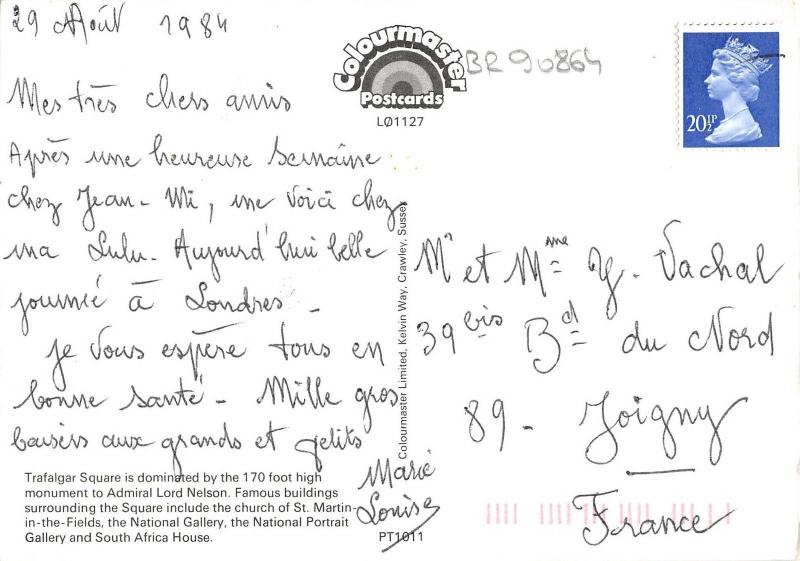 29 Août 1984
Mes très chers amis
Après une heureuse semaine
chez Jean-Mi, me voici chez
ma Lulu. Aujourd'hui belle
journée à Londres -
je vous espère tous en
bonne santé - Mille gros
baisers aux grands et petits
Marie
Louise
Trafalgar Square is dominated by the 170 foot high
monument to Admiral Lord Nelson. Famous buildings
surrounding the Square include the church of St. Martin-
in-the-Fields, the National Gallery, the National Portrait
Gallery and South Africa House.
PT1011
Colourmaster
Postcards
LØ1127
BR90864
Colourmaster Limited, Kelvin Way, Crawley, Sussex
20½P
Mr et Mme Y. Vachal
39 bis Bd du Nord
89 - Joigny
France